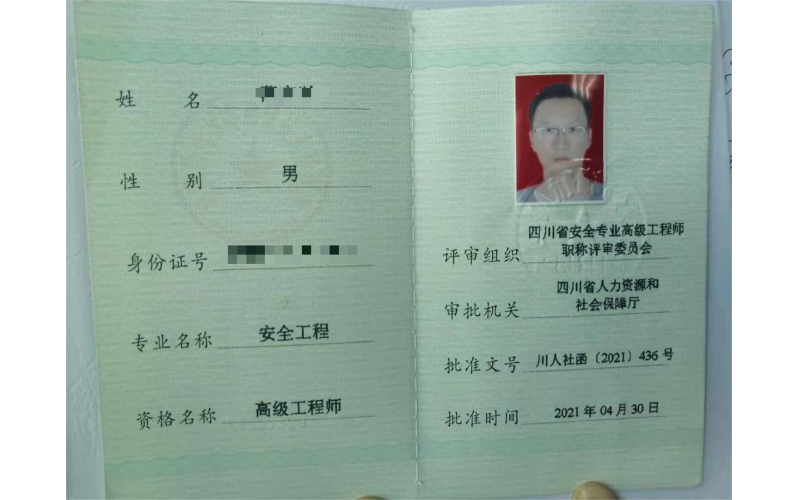 姓 名
性 别 男
身份证号
专业名称 安全工程
资格名称 高级工程师
评审组织 四川省安全专业高级工程师
职称评审委员会
审批机关 四川省人力资源和
社会保障厅
批准文号 川人社函〔2021〕436 号
批准时间 2021 年 04 月 30 日